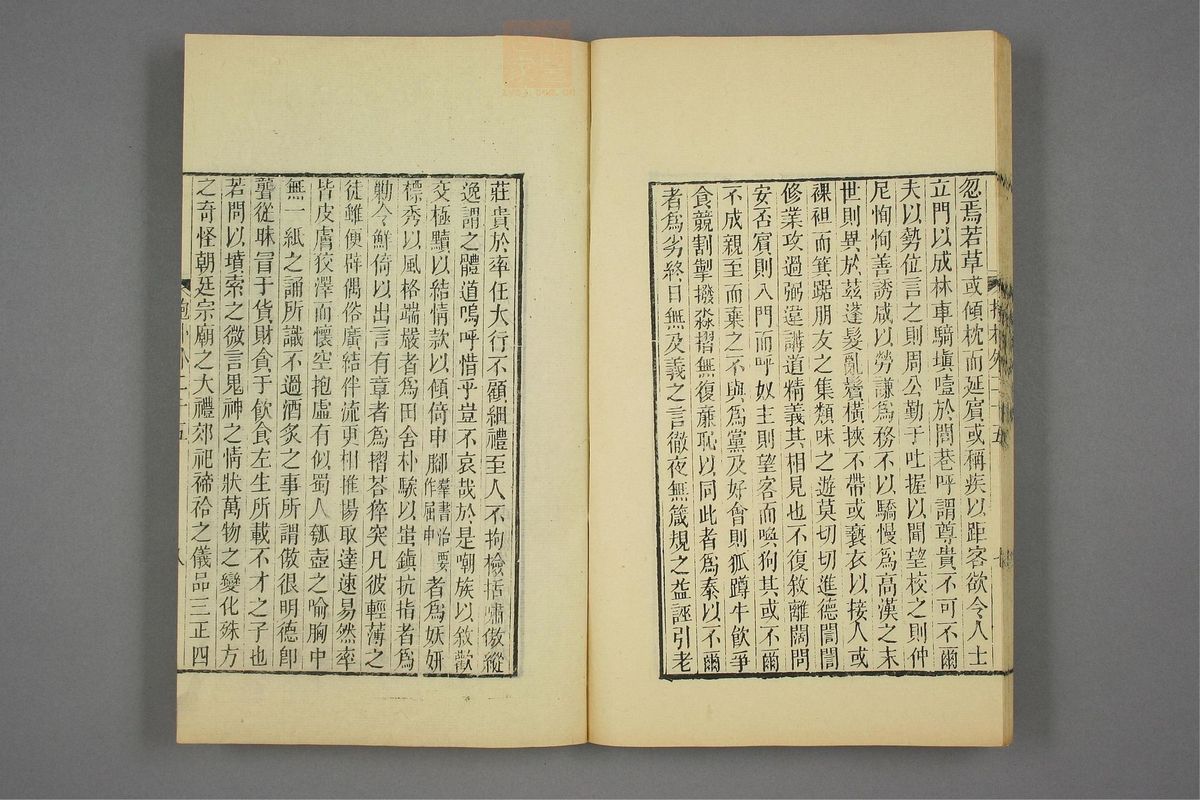 忽焉若草或傾枕而延賓或稱疾以距客欲令人士
立門以成林車騎塡噎於閭巷呼謂尊貴不可不爾
夫以勢位言之則周公勤于吐握以聞望校之則仲
尼恂恂善誘咸以勞謙爲務不以驕慢爲高漢之末
世則異於茲蓬髮亂鬢橫挾不帶或褻衣以接人或
裸袒而箕踞朋友之集類味之遊莫切切進德誾誾
修業攻過弼違講道精義其相見也不復敘離闊問
安否賓則入門而呼奴主則望客而喚狗其或不爾
不成親至而棄之不與爲黨及好會則狐蹲牛飮爭
食競割掣撥淼摺無復廉恥以同此者爲泰以不爾
者爲劣終日無及義之言徹夜無箴規之益誣引老
莊貴於率任大行不顧細禮至人不拘檢括嘯傲縱
逸謂之體道嗚呼惜乎豈不哀哉於是嘲族以敘歡
交極黷以結情款以傾倚申腳羣書治要作屈申者爲妖妍
標秀以風格端嚴者爲田舍朴騃以蚩鎮抗指者爲
勦令鮮倚以出言有章者爲摺荅猝突凡彼輕薄之
徒雖便辟偶俗廣結伴流更相推揚取達速易然率
皆皮膚狡澤而懷空抱虛有似蜀人瓠壺之喻胸中
無一紙之誦所識不過酒炙之事所謂傲很明德卽
聾從昧冒于貨財貪于飮食左生所載不才之子也
若問以墳索之微言鬼神之情狀萬物之變化殊方
之奇怪朝廷宗廟之大禮郊祀禘祫之儀品三正四